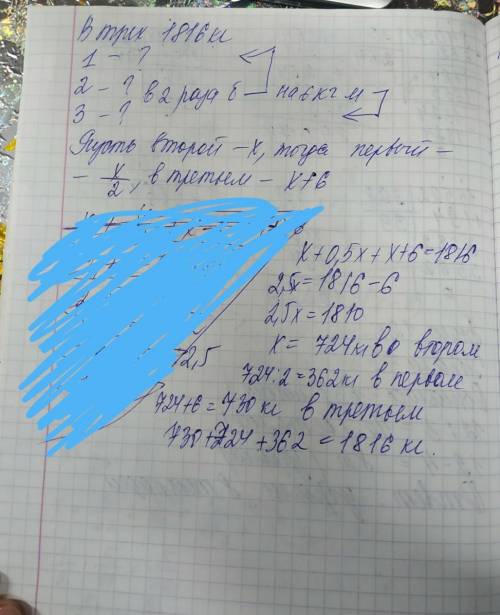 В трёх 1816 кг
1 - ?
2 - ? в 2 раза б на 6 кг м
3 - ?
Пусть второй - x, тогда первый -
- x/2, в третьем - x+6
x+0,5x+x+6=1816
2,5x=1816-6
2,5x=1810
2,5
x= 724 кг во втором
724:2=362 кг в первом
724+6=730 кг в третьем
730+724+362=1816 кг.